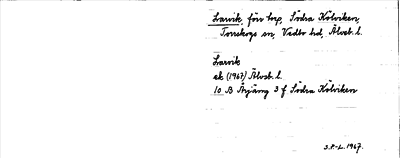 Larvik förr trp, Södra Kölviken,
Torrskogs sn, Vedbo hd, Älvsb. l.
Larvik
ek (1967) Älvsb. l.
10 B Årjäng 3 f Södra Kölviken
S.P-L. 1967.